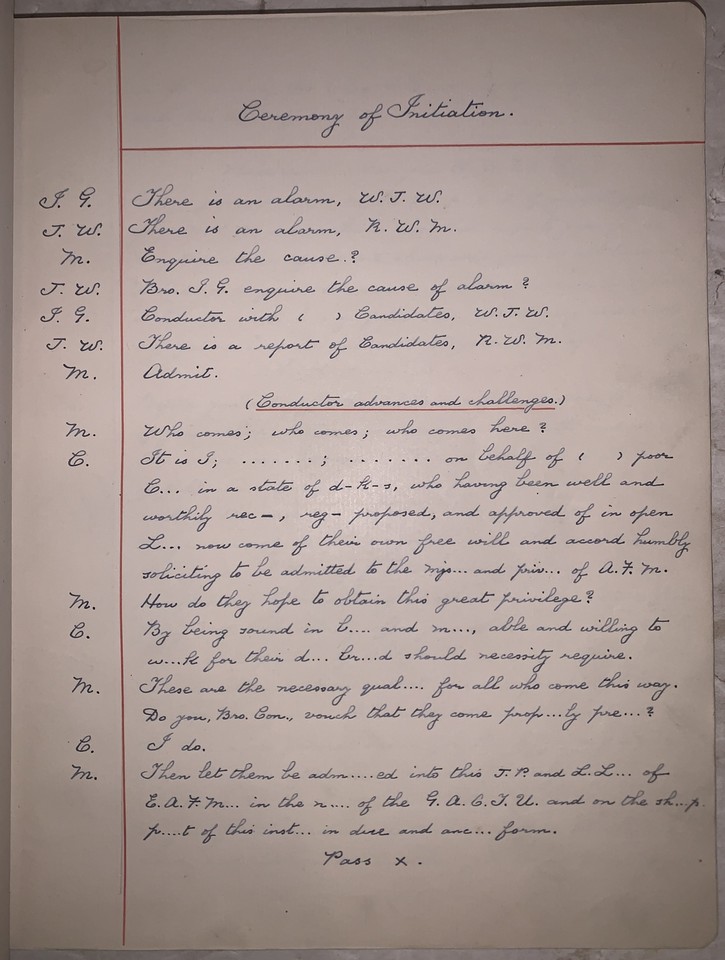 Ceremony of Initiation.
I. G. There is an alarm, W. J. W.
J. W. There is an alarm, R. W. M.
M. Enquire the cause.?
J. W. Bro. I. G. enquire the cause of alarm?
I. G. Conductor with ( ) Candidates, W. J. W.
J. W. There is a report of Candidates, R. W. M.
M. Admit.
(Conductor advances and challenges.)
M. Who comes; who comes; who comes here?
C. It is I; .......; ....... on behalf of ( ) poor
C... in a state of d-k-s, who having been well and
worthily rec-, reg- proposed, and approved of in open
L... now come of their own free will and accord humbly
soliciting to be admitted to the mys... and priv... of A. F. M.
M. How do they hope to obtain this great privilege?
C. By being sound in l.... and m..., able and willing to
w...k for their d... br...d should necessity require.
M. These are the necessary qual.... for all who come this way.
Do you, Bro. Con., vouch that they come prop...ly pre...?
C. I do.
M. Then let them be adm.....ed into this J. P. and L. L... of
E. A. F. M... in the n.... of the G. A. O. T. U. and on the sh...p.
p....t of this inst... in due and anc... form.
Pass x.